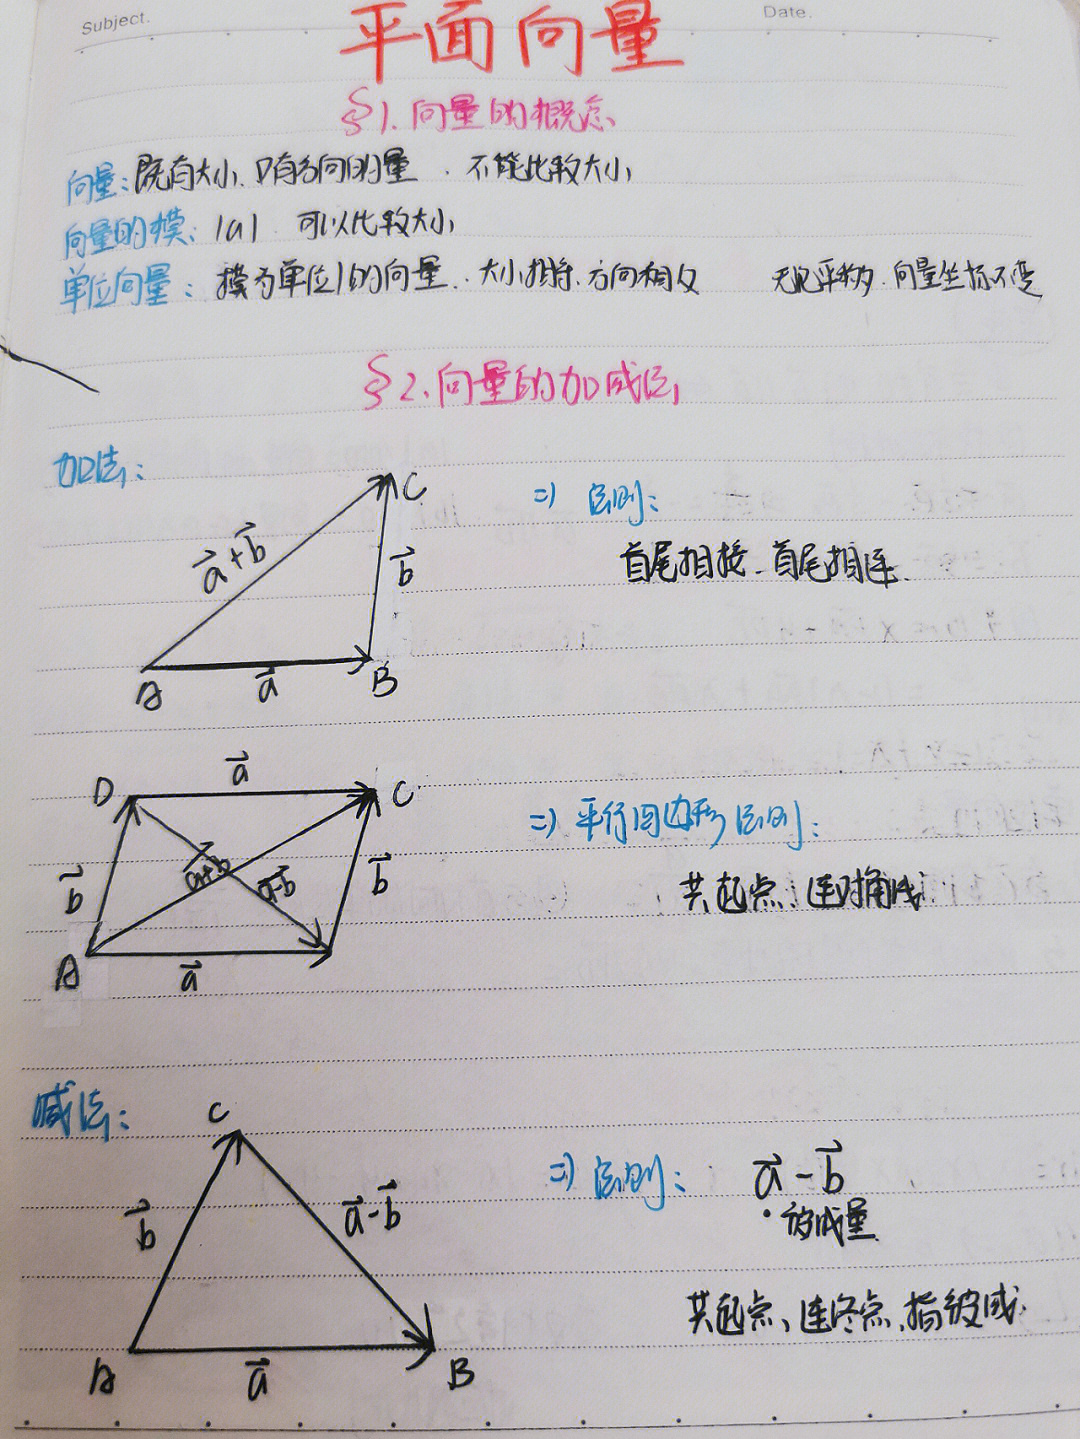 Subject.
Date.
平面向量
§1.向量的概念
向量:既有大小、又有方向的量.不能比较大小
向量的模:|a| 可以比较大小
单位向量:模为单位1的向量. 大小相等、方向相 无论平移,向量坐标不变
§2.向量的加减法
加法:
C
a⃗+b⃗
b⃗
A
a⃗
B
=> 法则:
首尾相接、首尾相连
D
a⃗
C
b⃗
a⃗+b⃗
a⃗-b⃗
b⃗
A
a⃗
=> 平行四边形法则:
共起点、连对角线
减法:
C
b⃗
a⃗-b⃗
A
a⃗
B
=> 法则: a⃗-b⃗
被减量
共起点、连终点、指被减